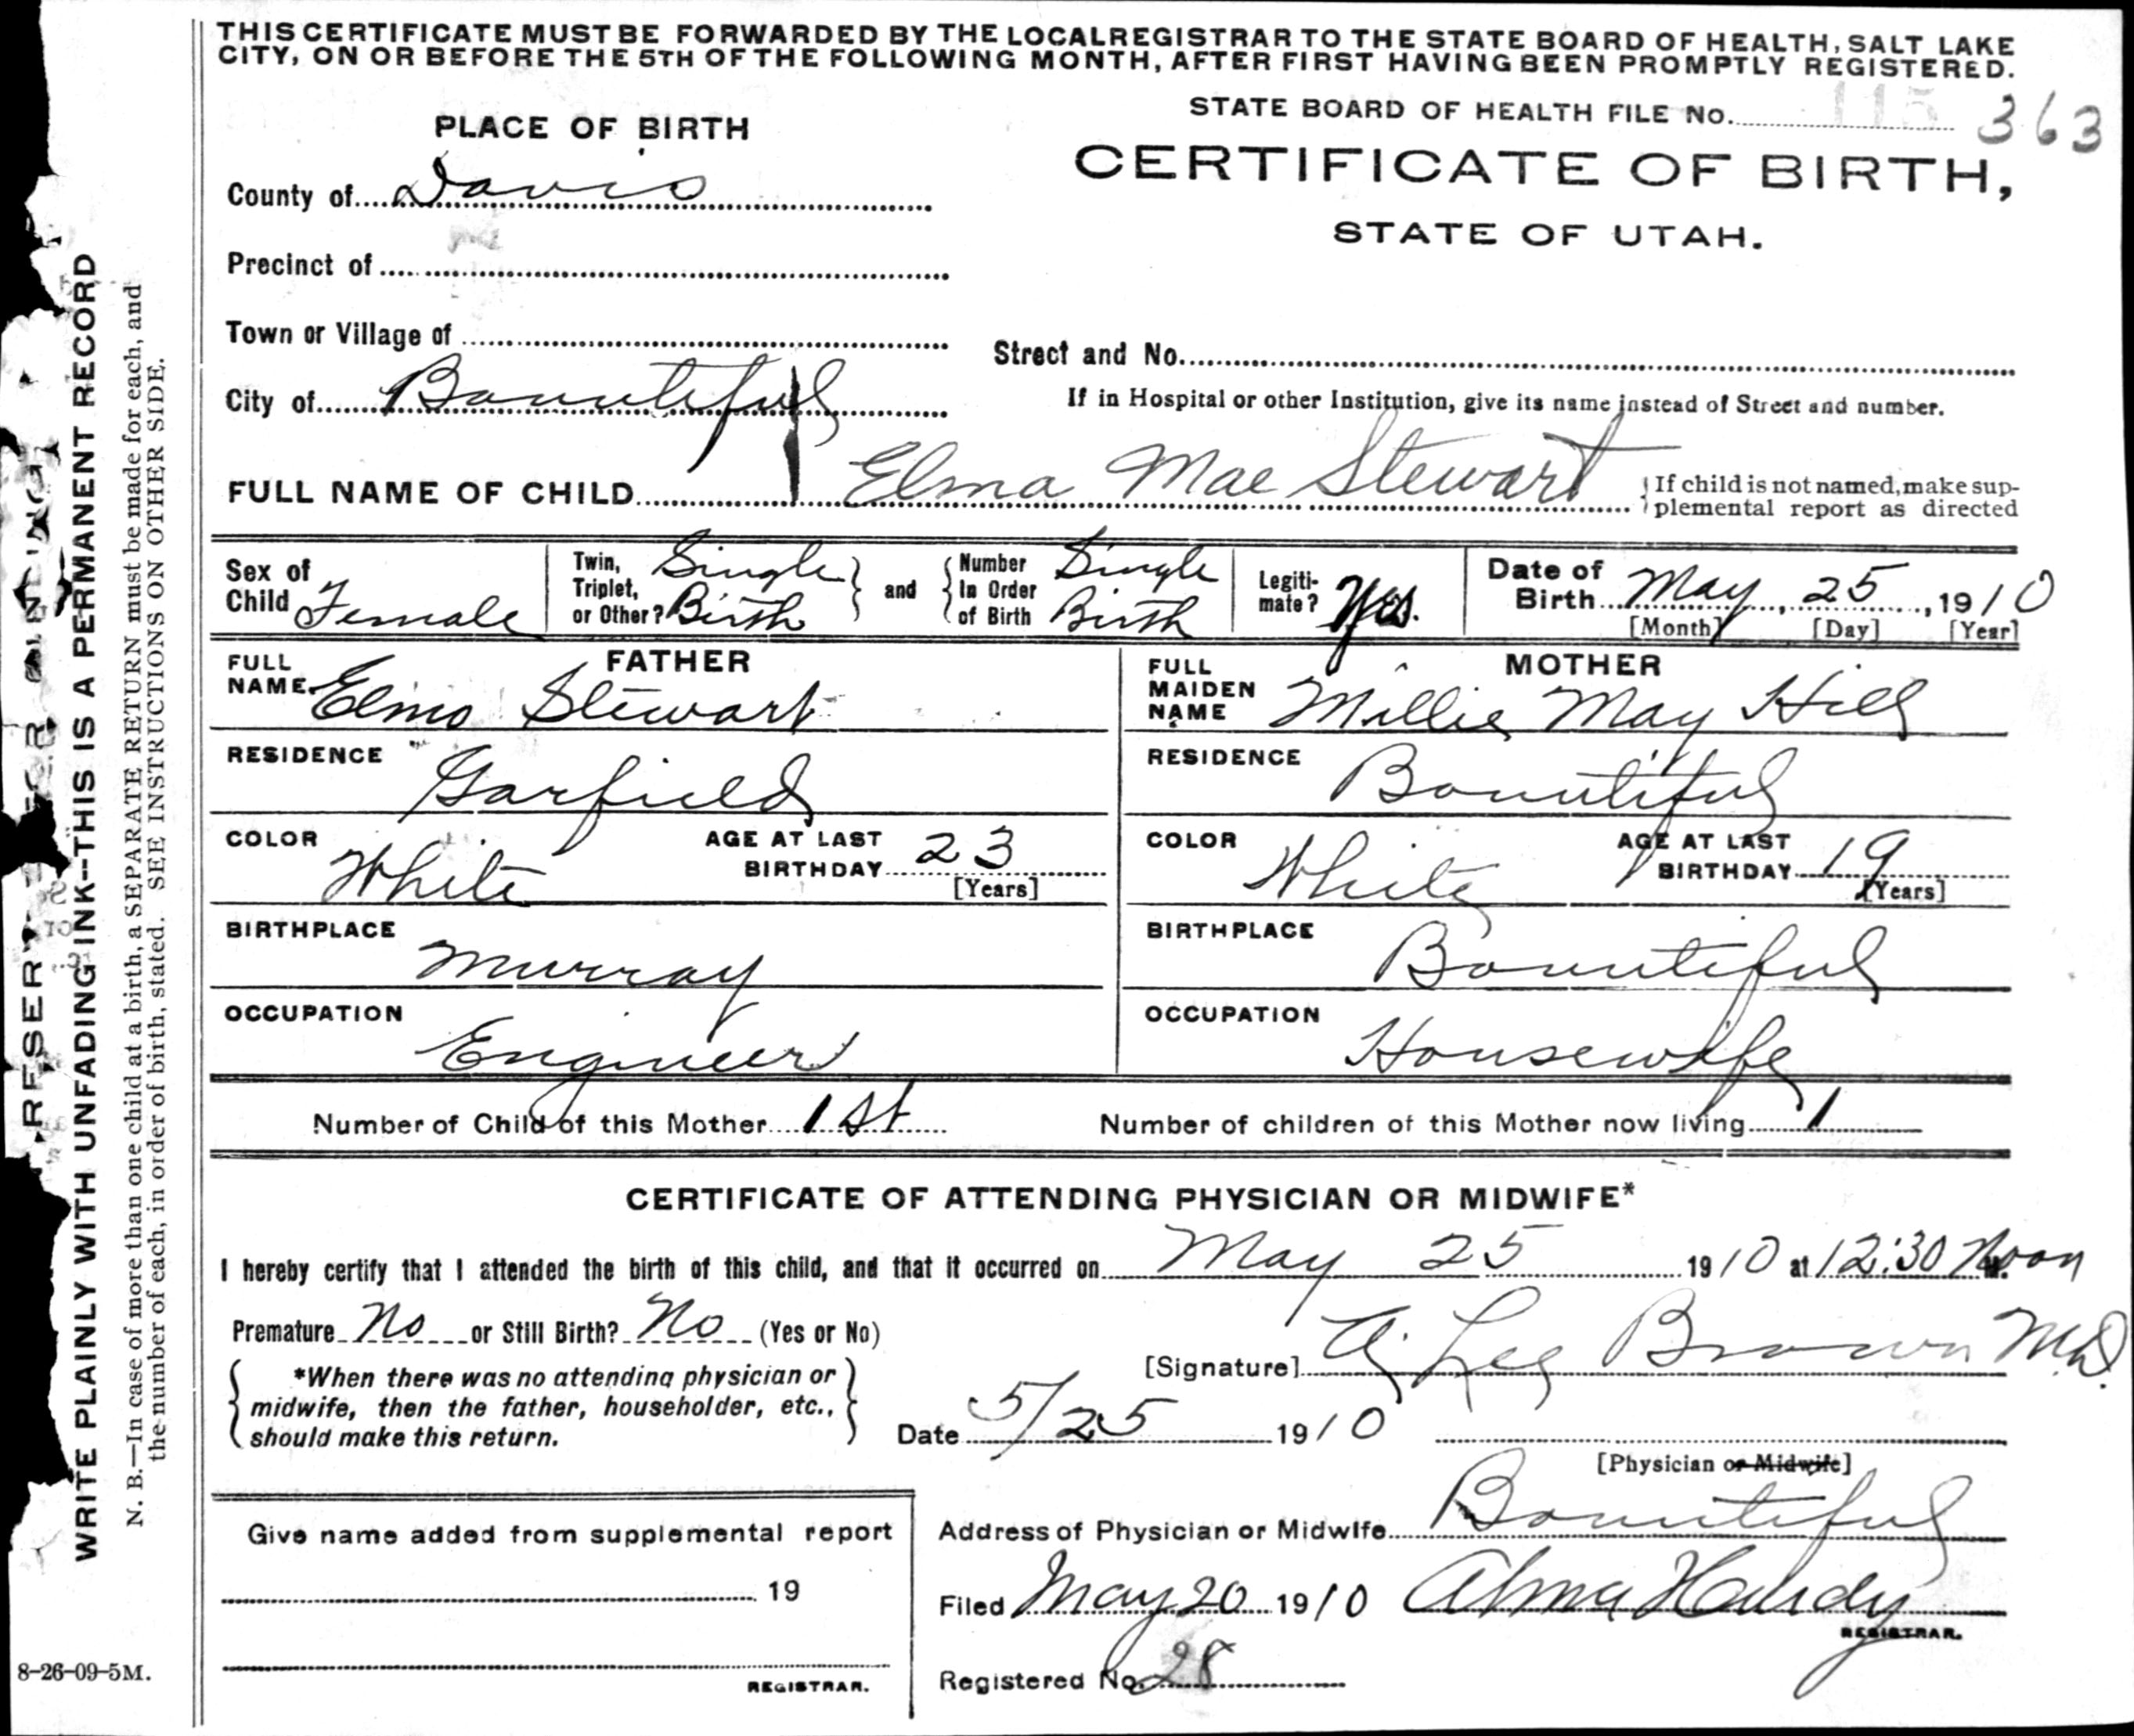 THIS CERTIFICATE MUST BE FORWARDED BY THE LOCAL REGISTRAR TO THE STATE BOARD OF HEALTH, SALT LAKE
CITY, ON OR BEFORE THE 5TH OF THE FOLLOWING MONTH, AFTER FIRST HAVING BEEN PROMPTLY REGISTERED.
STATE BOARD OF HEALTH FILE No. 115 363
PLACE OF BIRTH
CERTIFICATE OF BIRTH,
STATE OF UTAH.
County of Davis
Precinct of
Town or Village of
Street and No.
City of Bountiful
If in Hospital or other Institution, give its name instead of Street and number.
FULL NAME OF CHILD Elma Mae Stewart
If child is not named, make sup-
plemental report as directed
Sex of Child Female
Twin, Triplet, or Other? Single Birth
and
Number In Order of Birth Single Birth
Legiti-mate? Yes.
Date of Birth May, 25, 1910
[Month] [Day] [Year]
FATHER
FULL NAME Elmo Stewart
RESIDENCE Garfield
COLOR White
AGE AT LAST BIRTHDAY 23
[Years]
BIRTHPLACE Murray
OCCUPATION Engineer
MOTHER
FULL MAIDEN NAME Millie May Hill
RESIDENCE Bountiful
COLOR White
AGE AT LAST BIRTHDAY 19
[Years]
BIRTHPLACE Bountiful
OCCUPATION Housewife
Number of Child of this Mother 1st
Number of children of this Mother now living 1
CERTIFICATE OF ATTENDING PHYSICIAN OR MIDWIFE*
I hereby certify that I attended the birth of this child, and that it occurred on May 25 1910 at 12:30 Noon
Premature No or Still Birth? No (Yes or No)
*When there was no attending physician or
midwife, then the father, householder, etc.,
should make this return.
[Signature] A. Lee Brown M.D.
Date 5/25 1910
[Physician or Midwife]
Address of Physician or Midwife Bountiful
Filed May 20 1910 Alma Hardy
REGISTRAR.
Registered No. 28
Give name added from supplemental report
19
REGISTRAR.
8-26-09-5M.
WRITE PLAINLY WITH UNFADING INK--THIS IS A PERMANENT RECORD
N. B.—In case of more than one child at a birth, a SEPARATE RETURN must be made for each, and
the number of each, in order of birth, stated. SEE INSTRUCTIONS ON OTHER SIDE.